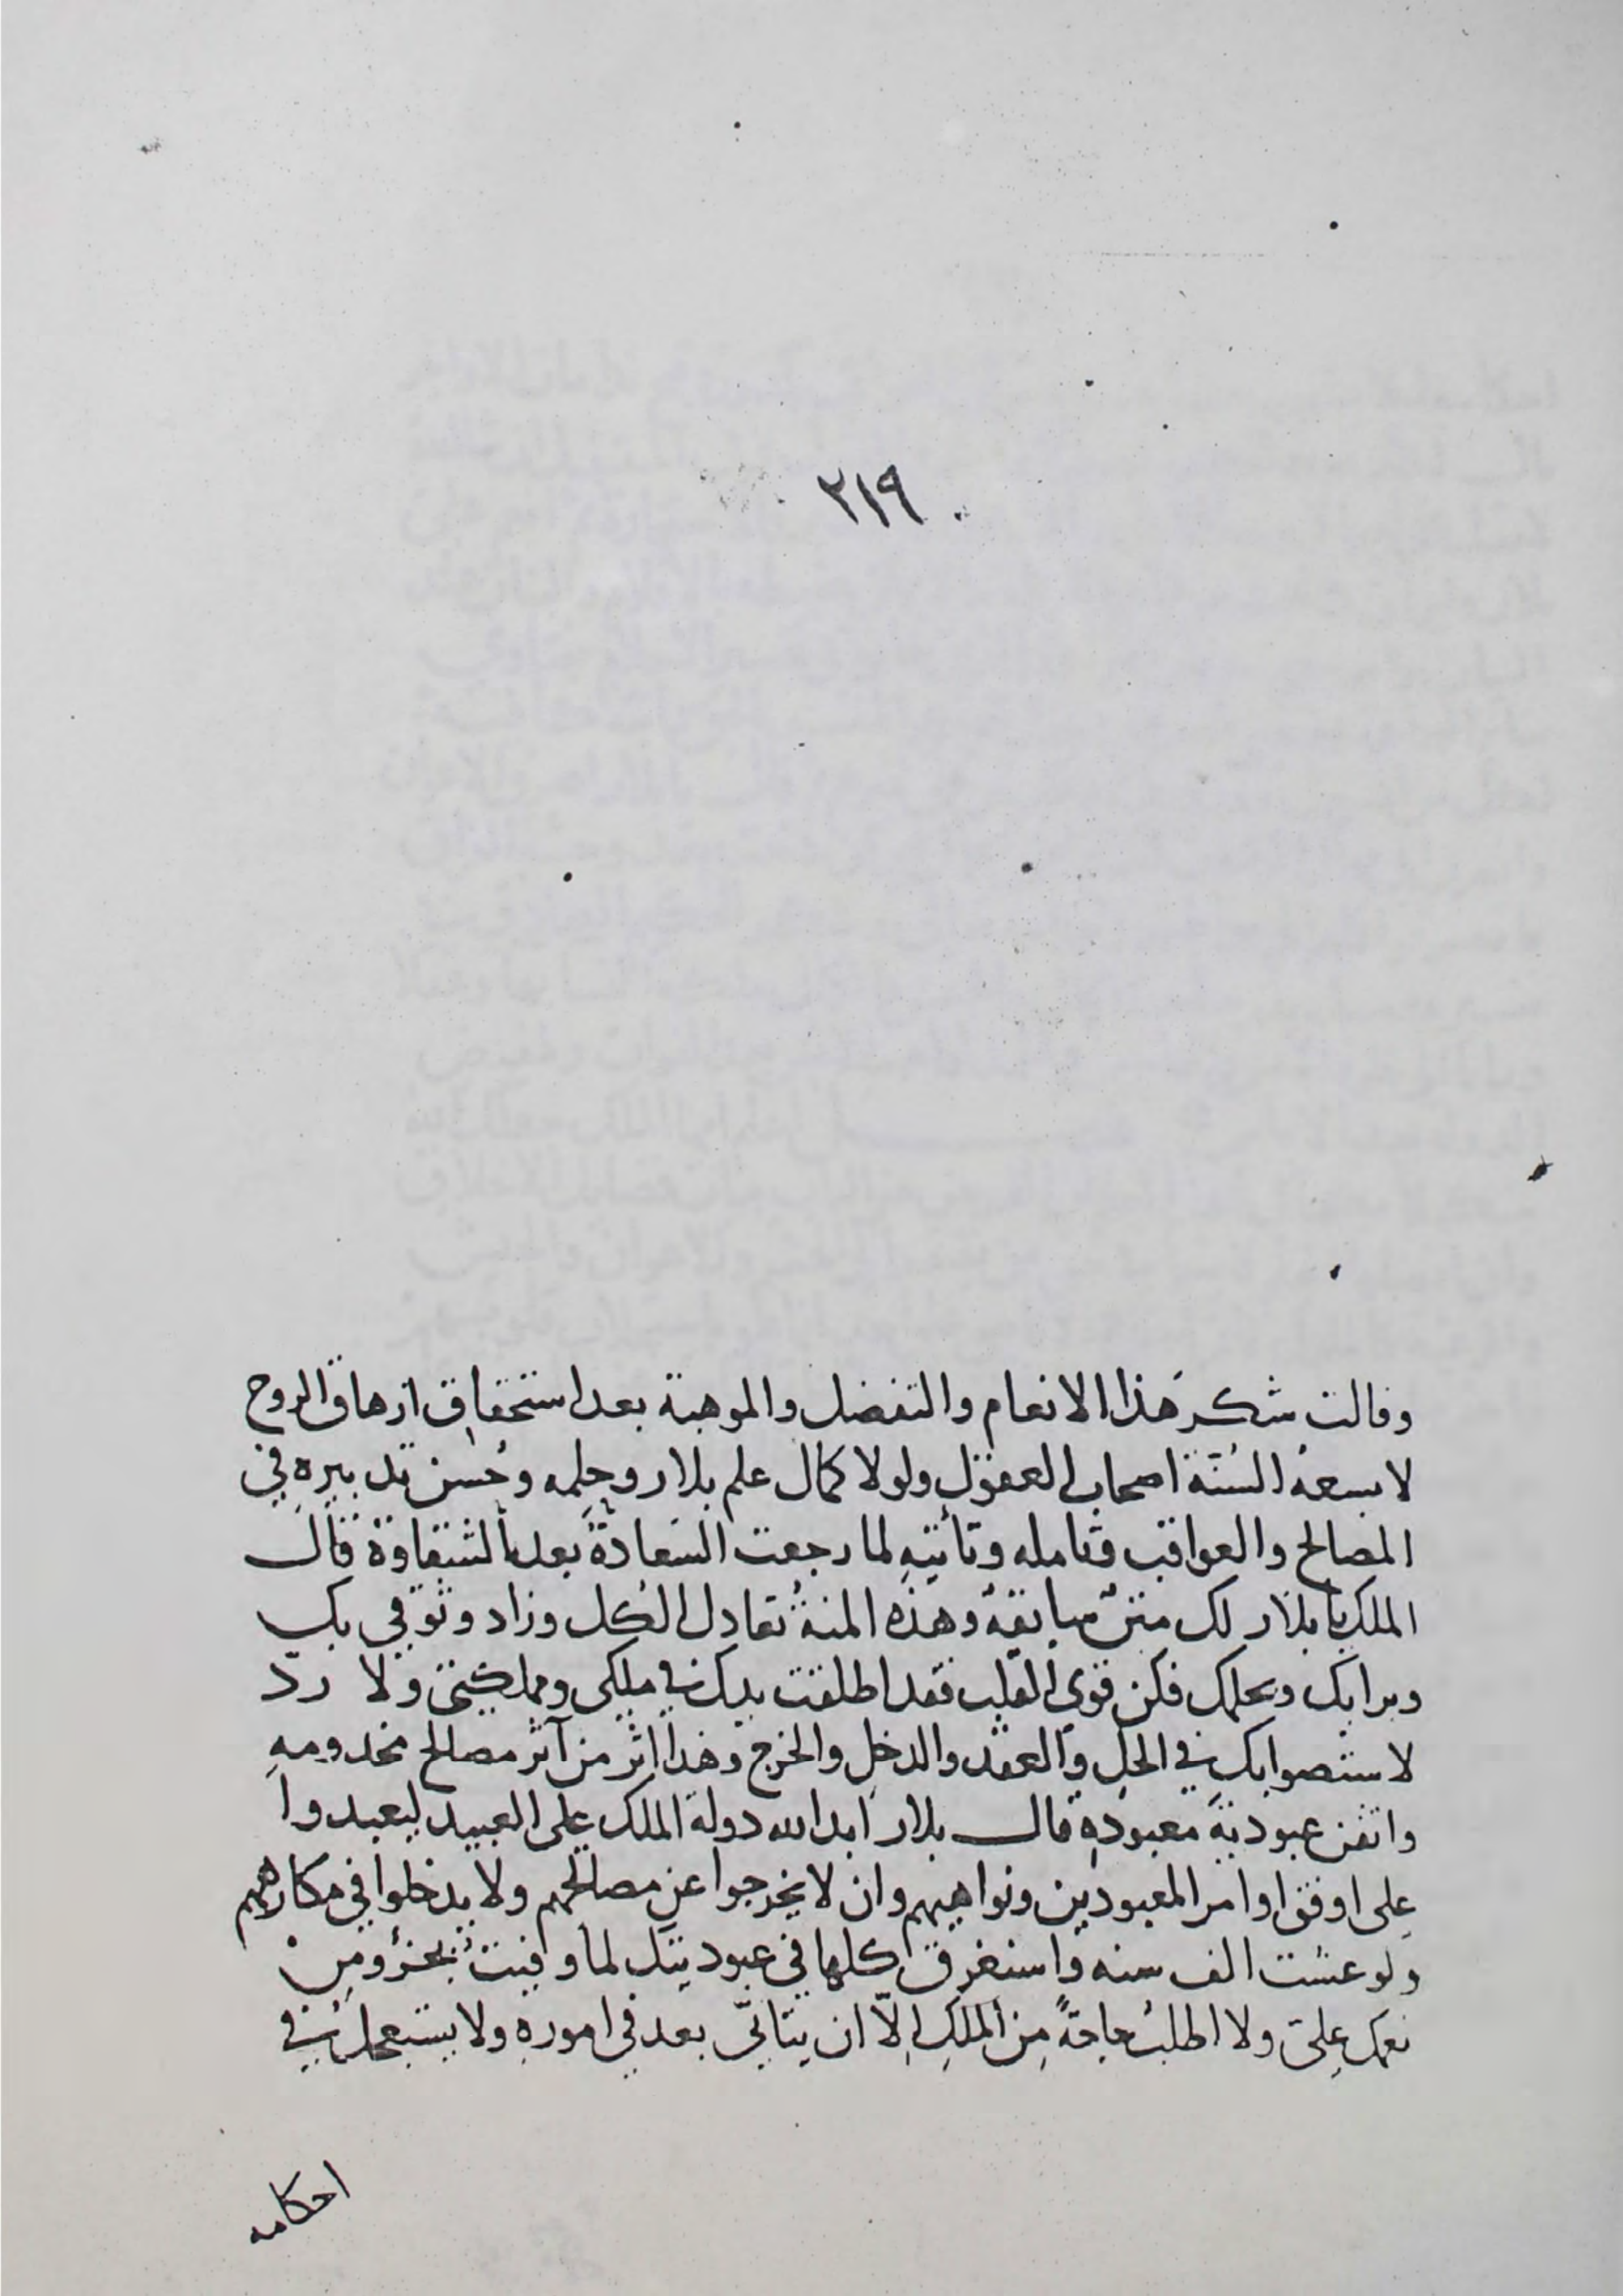 ٢١٩
وقالت شكر هذا الانعام والتفضل والموهبة بعد استحقاق ازهاق الروح
لا يسعه السنة اصحاب العقول ولولا كمال علم بلار وحلمه وحسن تدبيره في
المصالح والعواقب وتامله وتأنيه لما رجعت السعادة بعد الشقاوة قال
الملك يا بلار لك منن سابقة وهذه المنة تعادل الكل وزاد وثوقي بك
وبرايك وبحلمك فكن قوى القلب فقد اطلقت يدك في ملكى ومملكتى ولا ردّ
لاستصوابك في الحل والعقد والدخل والخرج وهذا اثر من آثر مصالح مخدومه
واتقن عبودية معبوده قال بلار ابد الله دولة الملك على العبيد ليعبدوا
على اوفق اوامر المعبودين ونواهيهم وان لا يخرجوا عن مصالحهم ولا يدخلوا في مكارههم
ولو عشت الف سنه واستغرق كلها في عبوديتك لما وفيت بجزؤ من
نعمك علىّ ولا اطلب حاجةً من الملك إلّا ان يتأنّى بعد في اموره ولا يستعجل في
احكامه